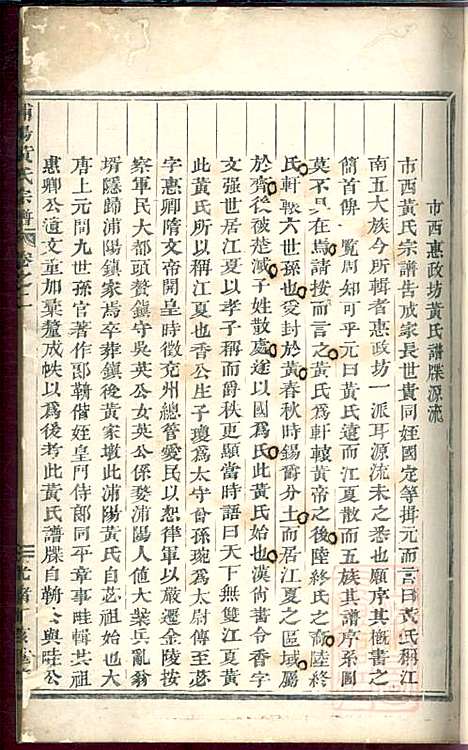 市西惠政坊黃氏譜牒源流
市西黃氏宗譜告成家長世貴同姪國定等揖元而言曰黃氏稱江
南五大族今所輯者惠政坊一派耳源流未之悉也願序其概書之
簡首俾一覽周知可乎元曰黃氏遠而江夏散而五族其譜序系圖
莫不具在焉請按而言之黃氏爲軒轅黃帝之後陸終氏之裔陸終
氏軒轅六世孫也受封於黃春秋時錫爵分土而居江夏之區域屬
於齊後被楚滅子姓散處遂以國爲氏此黃氏始也漢尚書令香字
文强世居江夏以孝子稱而爵秩更顯當時語曰天下無雙江夏黃
此黃氏所以稱江夏也香公生子瓊爲太守曾孫琬爲大尉傳至苾
字惠卿隋文帝開皇時徵兗州總管愛民以恕律軍以嚴遷金陵按
察軍民大都頭贊鎮守吳英公女英公係婺浦陽人値大業兵亂翁
壻隱歸浦陽鎮家焉卒葬鎮後黃家墩此浦陽黃氏自苾祖始也大
唐上元間九世孫官著作郎鞆偕姪皇門侍郎同平章事畦輯其祖
惠卿公遺文重加纂釐成帙以爲後考此黃氏譜牒自鞆公與畦公
浦陽黃氏宗譜
卷之一